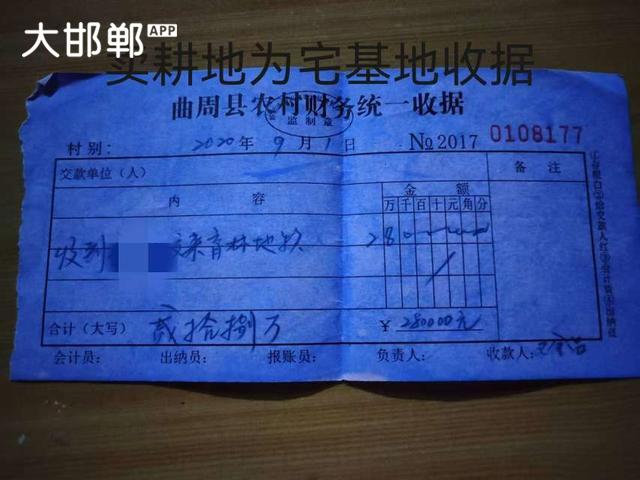 大邯郸APP
卖耕地为宅基地收据
曲周县农村财务统一收据
监制章
村别：
2020年9月1日
№2017 0108177
交款单位（人）
金额
备注
内容
万千百十元角分
收到
交来育林地款
280
合计（大写）
贰拾捌万
¥280000元
会计员：
出纳员：
报账员：
负责人：
收款人：